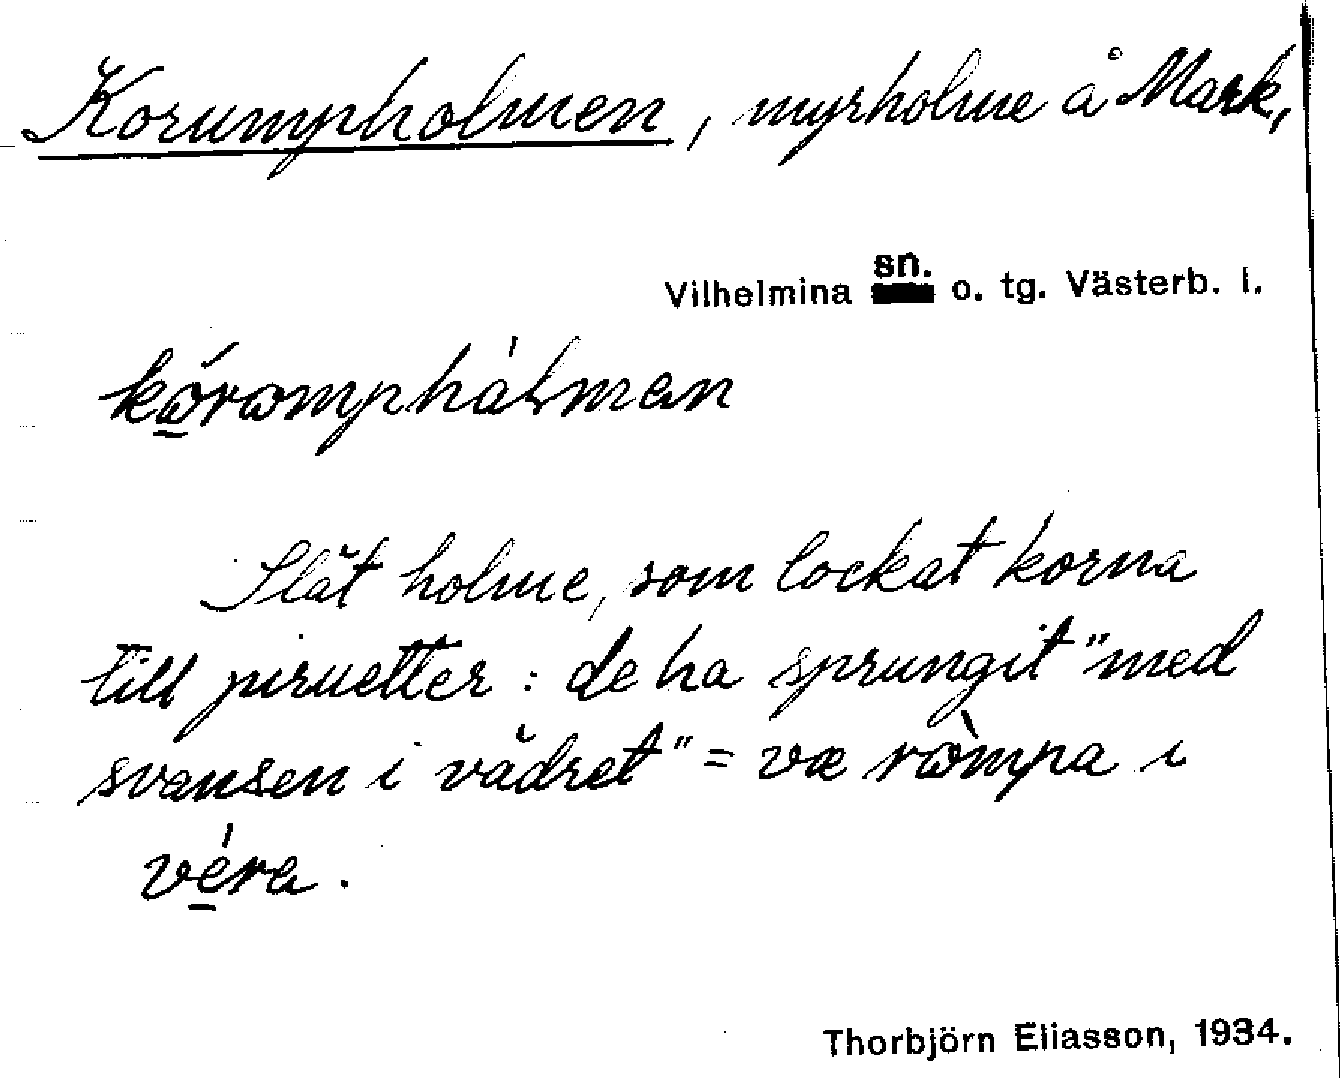 Korumpholmen, myrholme å Mark,
Vilhelmina sn. o. tg. Västerb. l.
kώ̲rωmphåĺman
Slät holme, som lockat korna
till piruetter: de ha sprungit "med
svansen i vädret" = væ rὼmpa i
vé̲ra.
Thorbjörn Eliasson, 1934.